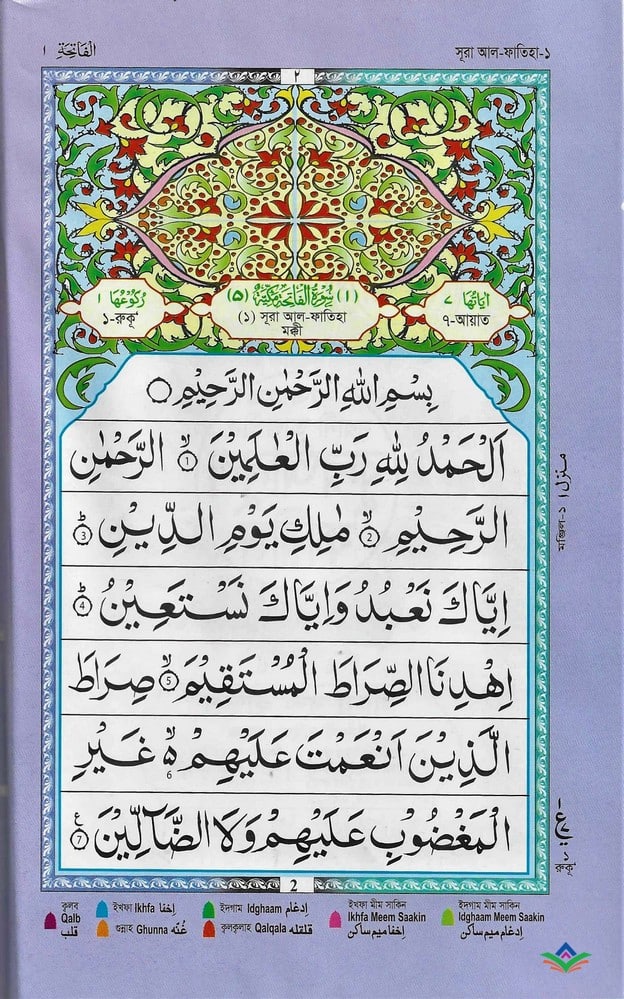 الْفَاتِحَة ١
সূরা আল-ফাতিহা-১
٢
اٰيَاتُهَا ٧
৭-আয়াত
(١) سُوْرَةُ الْفَاتِحَةِ مَكِّيَّةٌ (٥)
(১) সূরা আল-ফাতিহা
মক্কী
رُكُوْعُهَا ١
১-রুকূ'
بِسْمِ اللهِ الرَّحْمٰنِ الرَّحِيْمِ ۝
اَلْحَمْدُ لِلّٰهِ رَبِّ الْعٰلَمِيْنَ ۙ 1 الرَّحْمٰنِ
الرَّحِيْمِ ۙ 2 مٰلِكِ يَوْمِ الدِّيْنِ ؕ 3
اِيَّاكَ نَعْبُدُ وَاِيَّاكَ نَسْتَعِيْنُ ؕ 4
اِهْدِنَا الصِّرَاطَ الْمُسْتَقِيْمَ ۙ 5 صِرَاطَ
الَّذِيْنَ اَنْعَمْتَ عَلَيْهِمْ ۙ۬ 6 غَيْرِ
الْمَغْضُوْبِ عَلَيْهِمْ وَلَا الضَّآلِّيْنَ ع 7
منزل ١
মঞ্জিল-১
রুকূ ১
2
কলব Qalb قلب
ইখফা Ikhfa اِخفا
গুন্নাহ Ghunna غُنّه
ইদগাম Idghaam اِدغام
কলকলাহ Qalqala قلقله
ইখফা মীম সাকিন
Ikhfa Meem Saakin
اِخفا ميم ساكن
ইদগাম মীম সাকিন
Idghaam Meem Saakin
اِدغام ميم ساكن